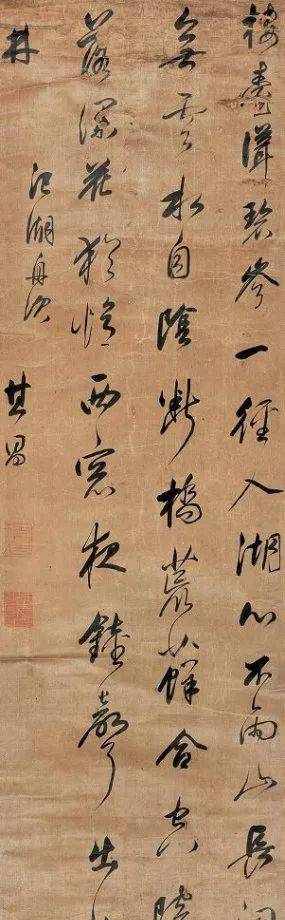 樓臺聳碧岑一徑入湖心不雨山長
無雲水自陰斷橋荒蘚合空
落深花猶憶西窓夜鐘聲出
林
江湖舟次 其昌